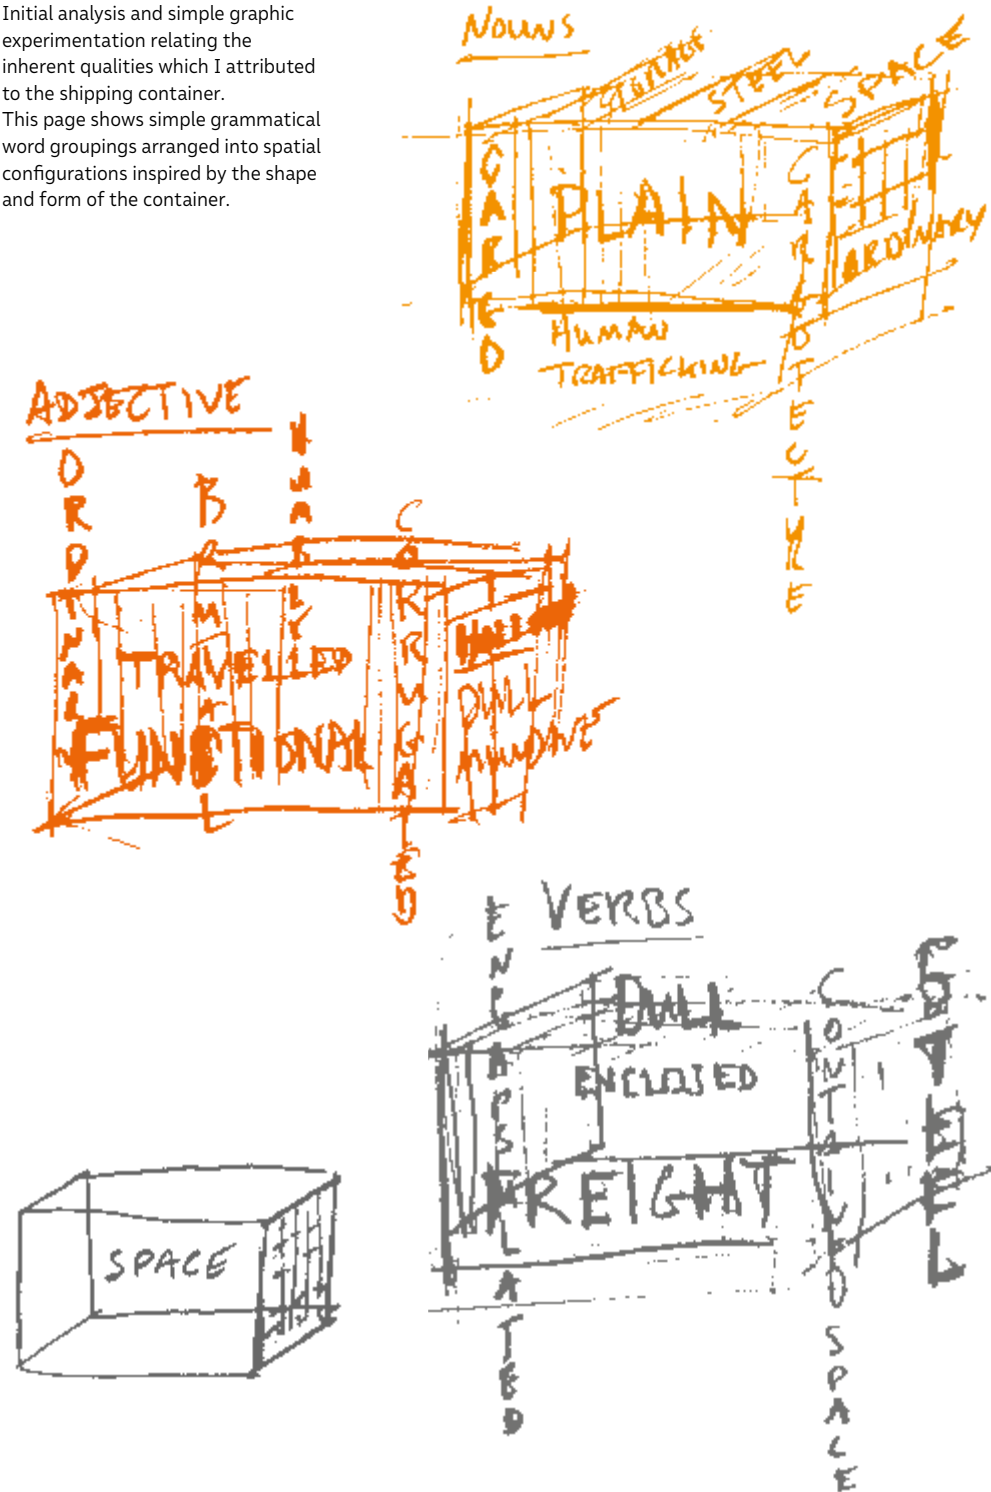 Initial analysis and simple graphic
experimentation relating the
inherent qualities which I attributed
to the shipping container.
This page shows simple grammatical
word groupings arranged into spatial
configurations inspired by the shape
and form of the container.
NOUNS
STORAGE
STEEL
SPACE
PLAIN
ORDINARY
HUMAN
TRAFFICKING
ADJECTIVE
TRAVELLED
FUNCTIONAL
CORRUGATED
DULL
MUNDANE
VERBS
DULL
ENCLOSED
FREIGHT
STEEL
CONTAINED SPACE
SPACE